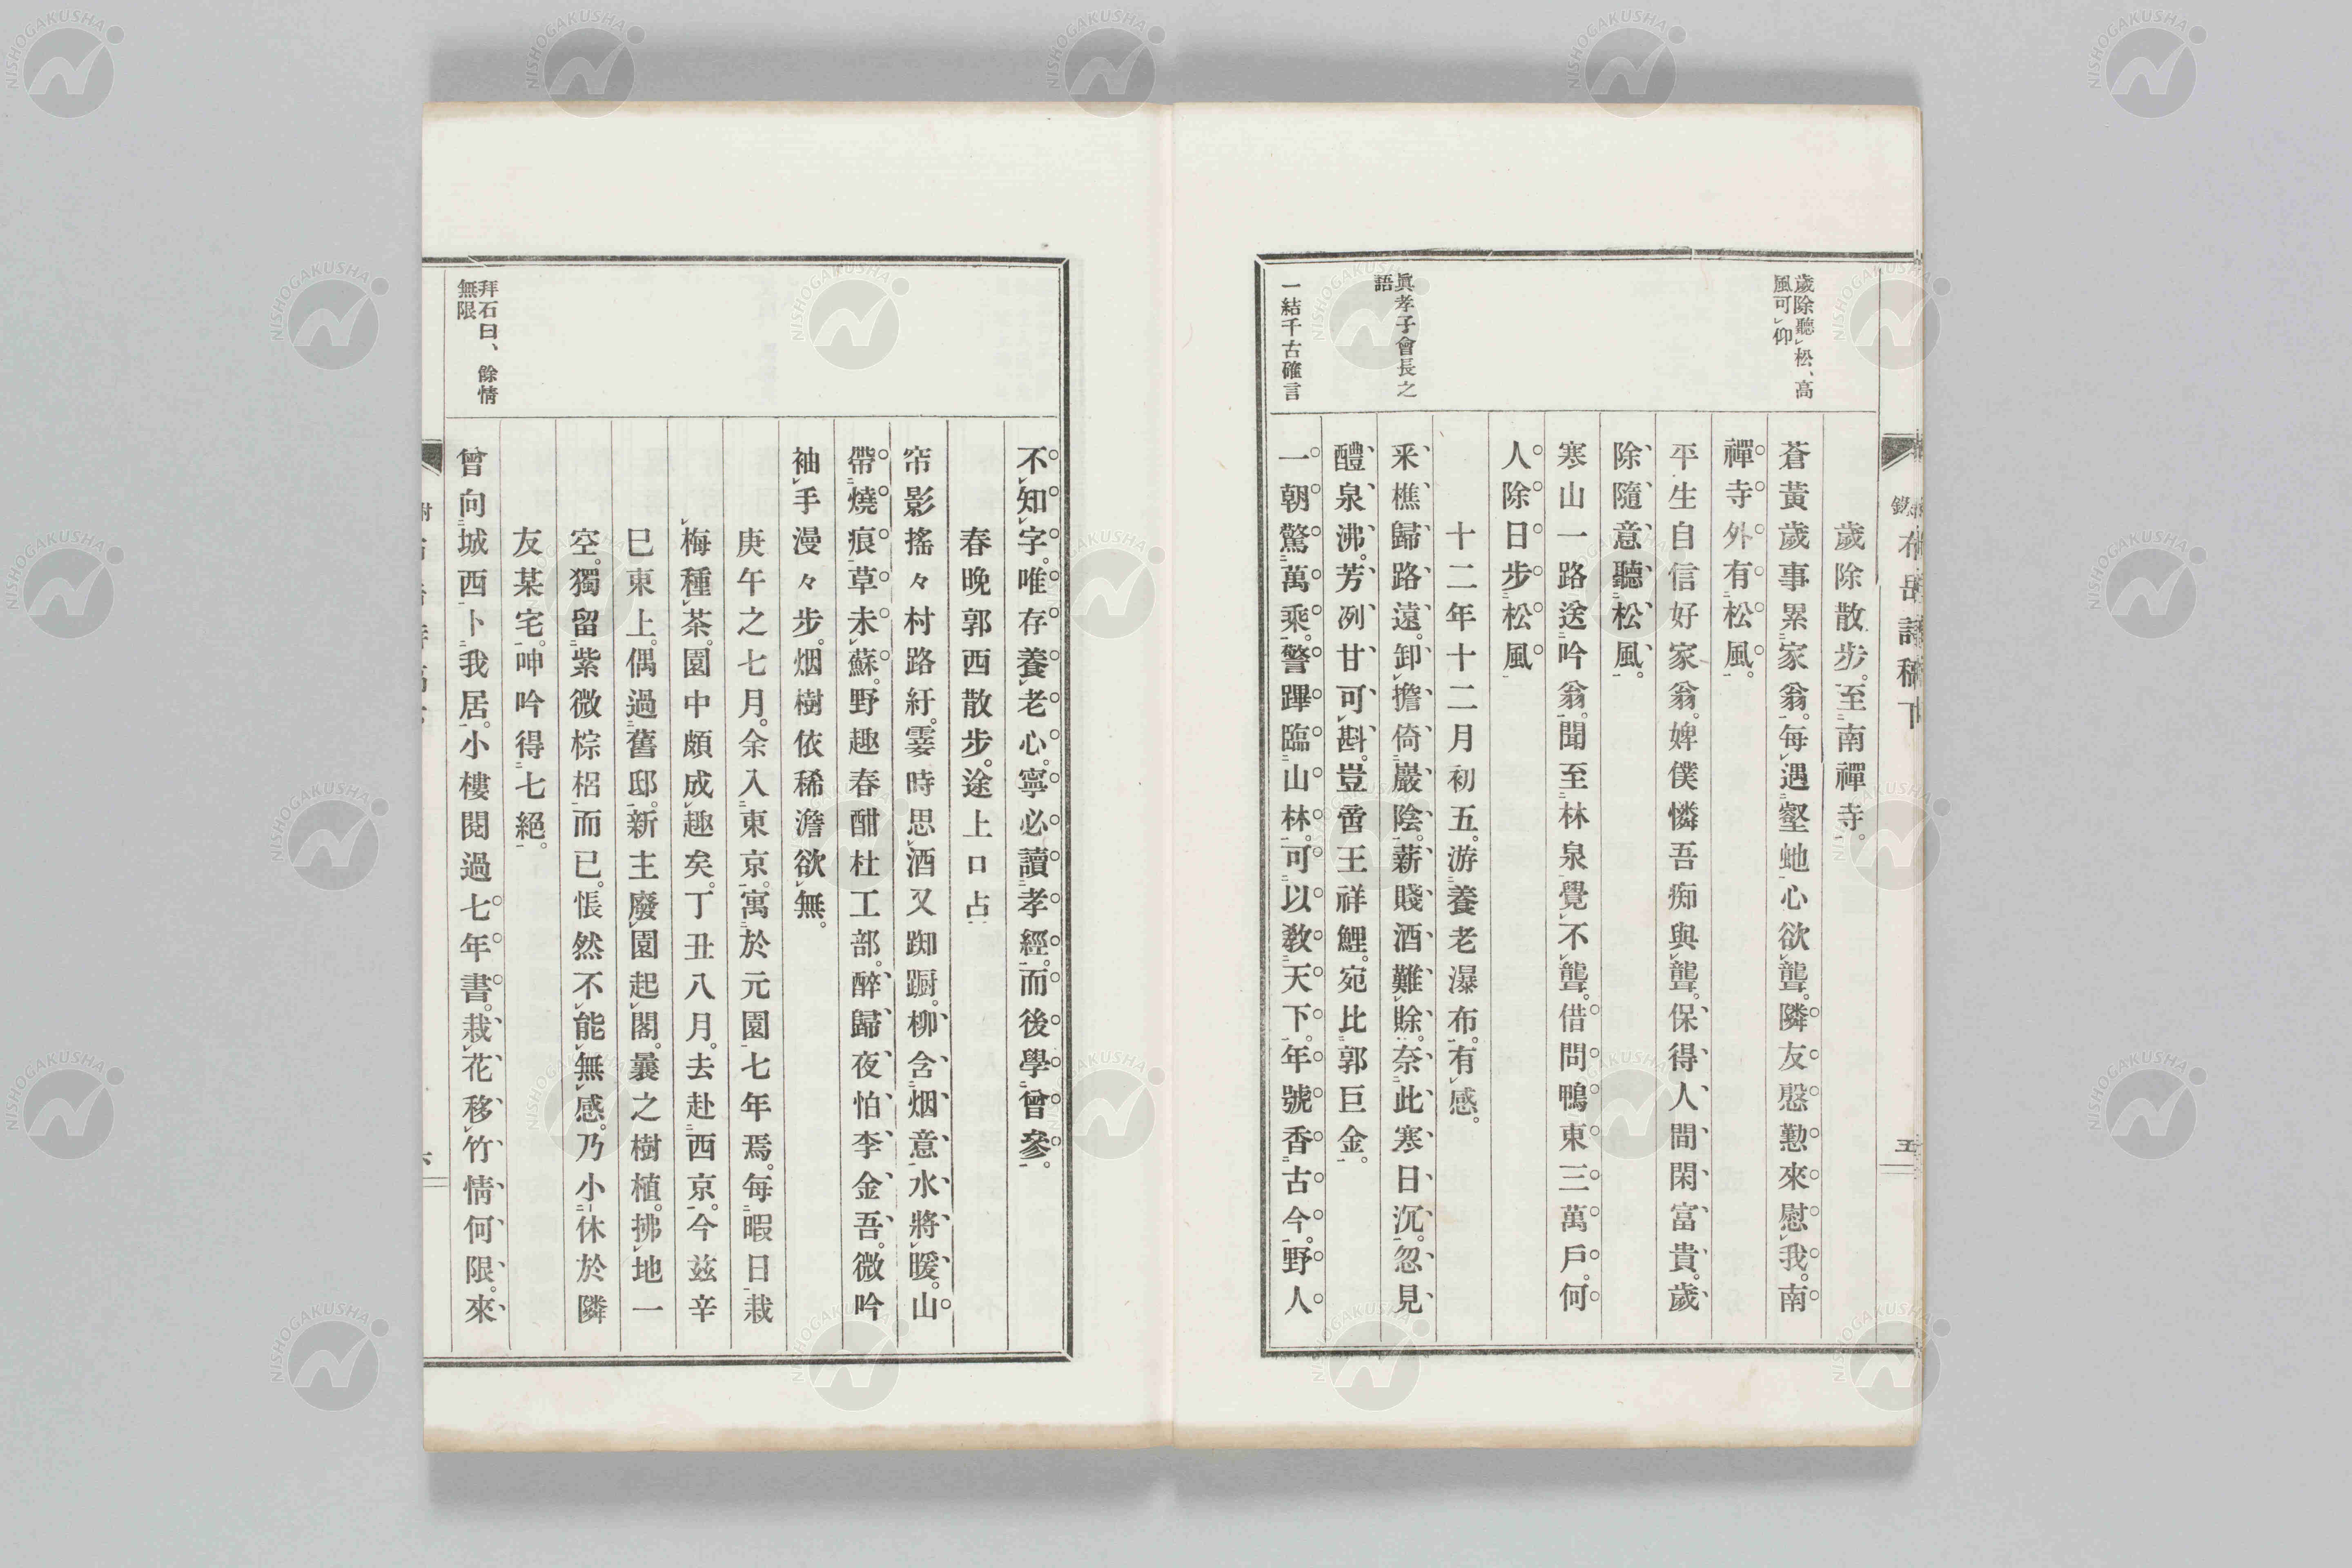 歲除聽松、高
風可仰
眞孝子會長之
語
一結千古確言
歲除散步。至南禪寺。
蒼黃歲事累家翁。每遇壑虵心欲聾。隣友慇懃來慰我。南
禪寺外有松風。
平生自信好家翁。婢僕憐吾痴與聾。保得人間閑富貴。歲
除隨意聽松風。
寒山一路送吟翁。聞至林泉覺不聾。借問鴨東三萬戶。何
人除日步松風
十二年十二月初五。游養老瀑布。有感。
釆樵歸路遠。卸擔倚巖陰。薪賤酒難賖。奈此寒日沉。忽見
醴泉沸。芳冽甘可斟。豈啻王祥鯉。宛比郭巨金。
一朝驚萬乘。警蹕臨山林。可以敎天下。年號香古今。野人
五
不知字。唯存養老心。寧必讀孝經。而後學曾參。
春晚郭西散步。途上口占
帘影搖々村路紆。霎時思酒又踟蹰。柳含烟意水將暖。山
帶燒痕草未蘇。野趣春酣杜工部。醉歸夜怕李金吾。微吟
袖手漫々步。烟樹依稀澹欲無。
庚午之七月。余入東京。寓於元園七年焉。每暇日栽
梅種茶。園中頗成趣矣。丁丑八月。去赴西京。今玆辛
巳東上。偶過舊邸。新主廢園起閣。曩之樹植。拂地一
空。獨留紫微棕梠而已。悵然不能無感。乃小休於隣
友某宅。呻吟得七絕。
拜石曰、餘情
無限
曾向城西卜我居。小樓閱過七年書。栽花移竹情何限。來